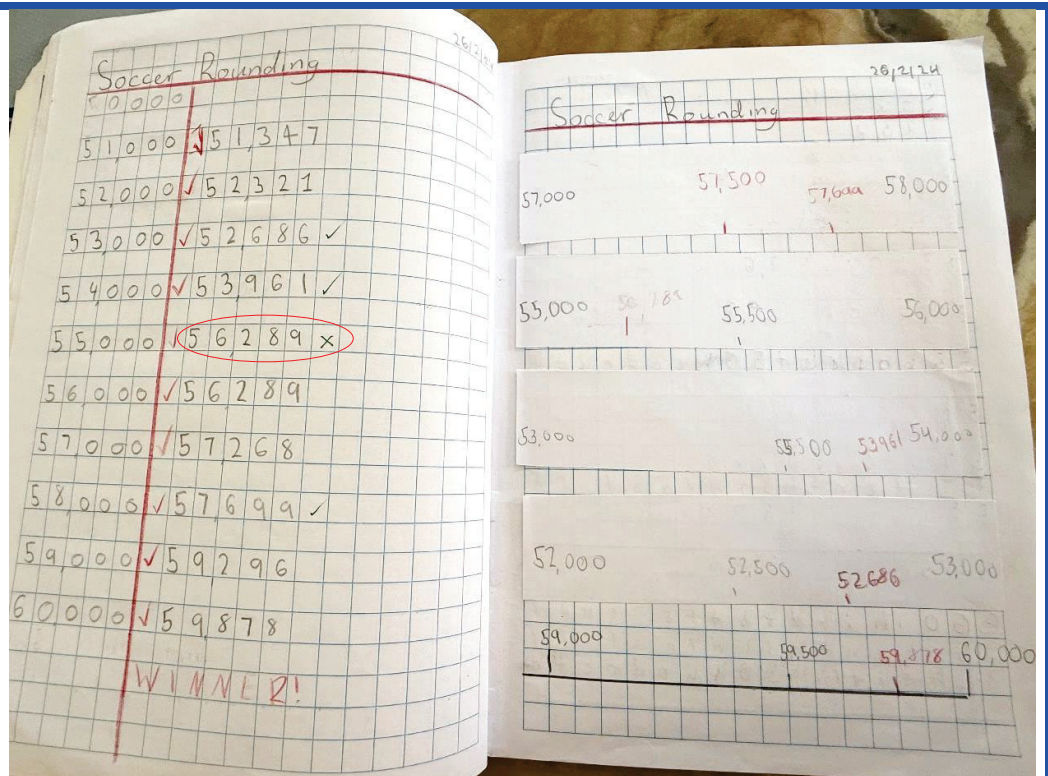 26/2/24
Soccer Rounding
50000
51,000 ✓ 51,347
52000 ✓ 52321
53,000 ✓ 52,686 ✓
54,000 ✓ 53,961 ✓
55,000 56,289 x
56,000 ✓ 56289
57,000 ✓ 57268
58,000 ✓ 57,699 ✓
59,000 ✓ 59,296
60000 ✓ 59,878
WINNER!
26/2/24
Soccer Rounding
57,000 57,500 58,000
55,000 55,500 56,000
53,000 53961 54,000
52,000 52,500 52686 53,000
59,000 59,500 59,878 60,000